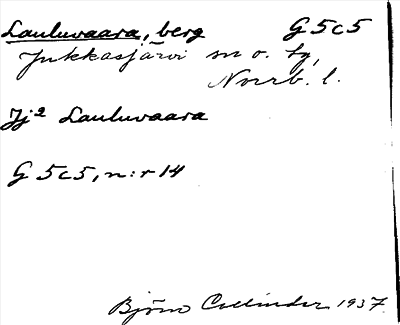 Lauluvaara, berg G 5c5
Jukkasjärvi sn o. tg,
Norrb. l.
Jj² Lauluvaara
G 5c5, n:r 14
Björn Collinder 1937.